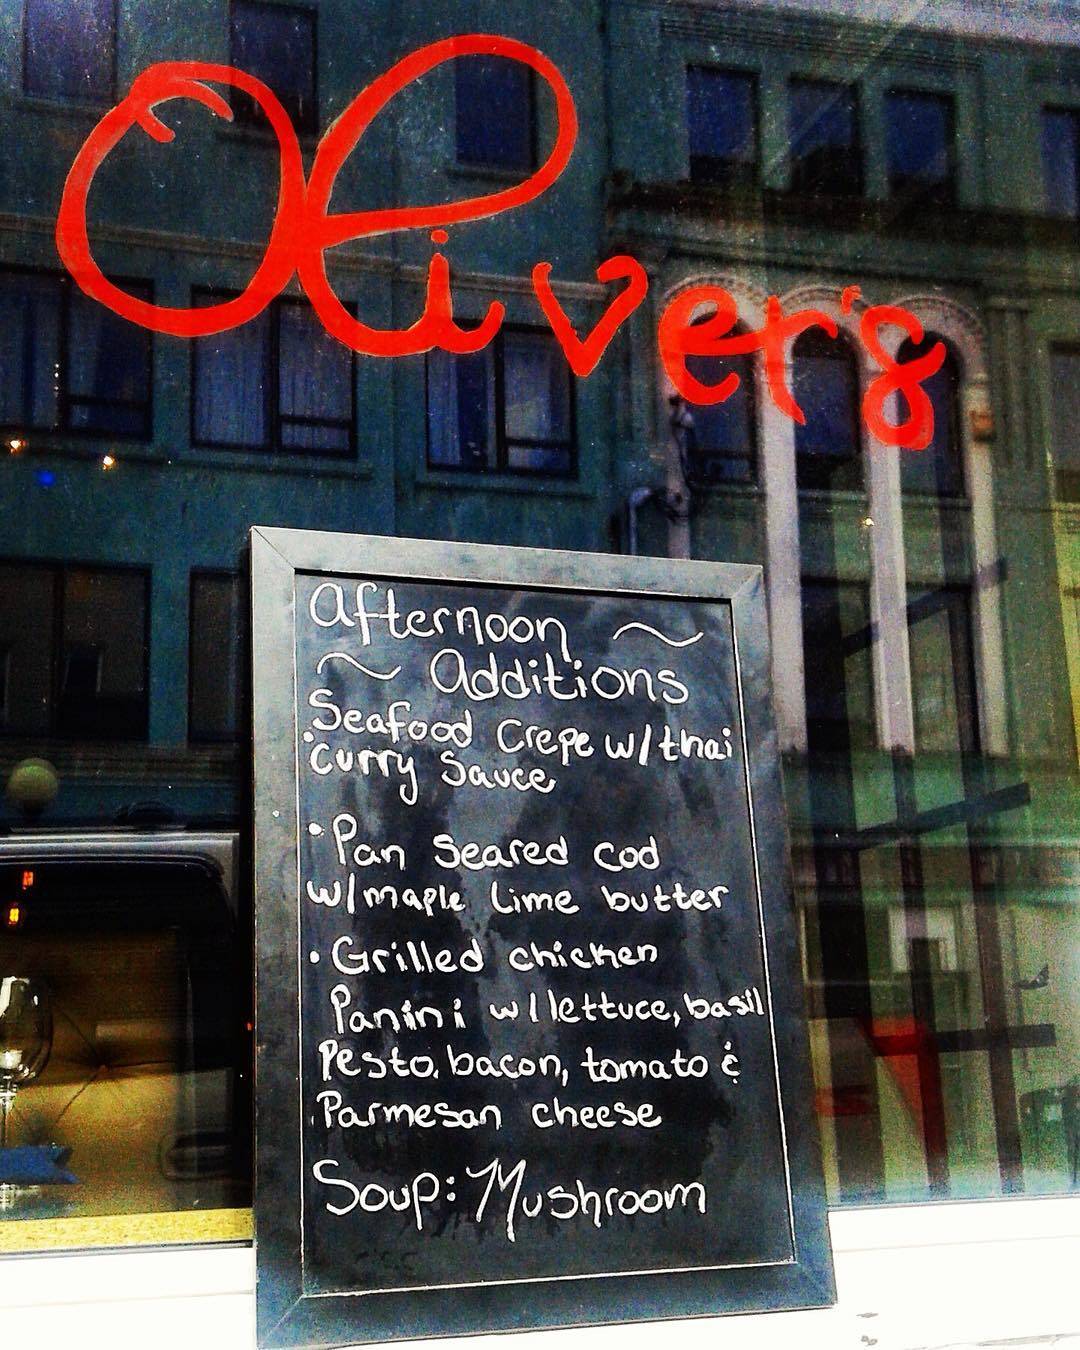 Oliver's
Afternoon ~
~ Additions
Seafood Crepe w/thai
• Curry Sauce
• Pan Seared cod
w/maple Lime butter
• Grilled chicken
Panini w/lettuce, basil
Pesto, bacon, tomato &
Parmesan cheese
Soup: Mushroom